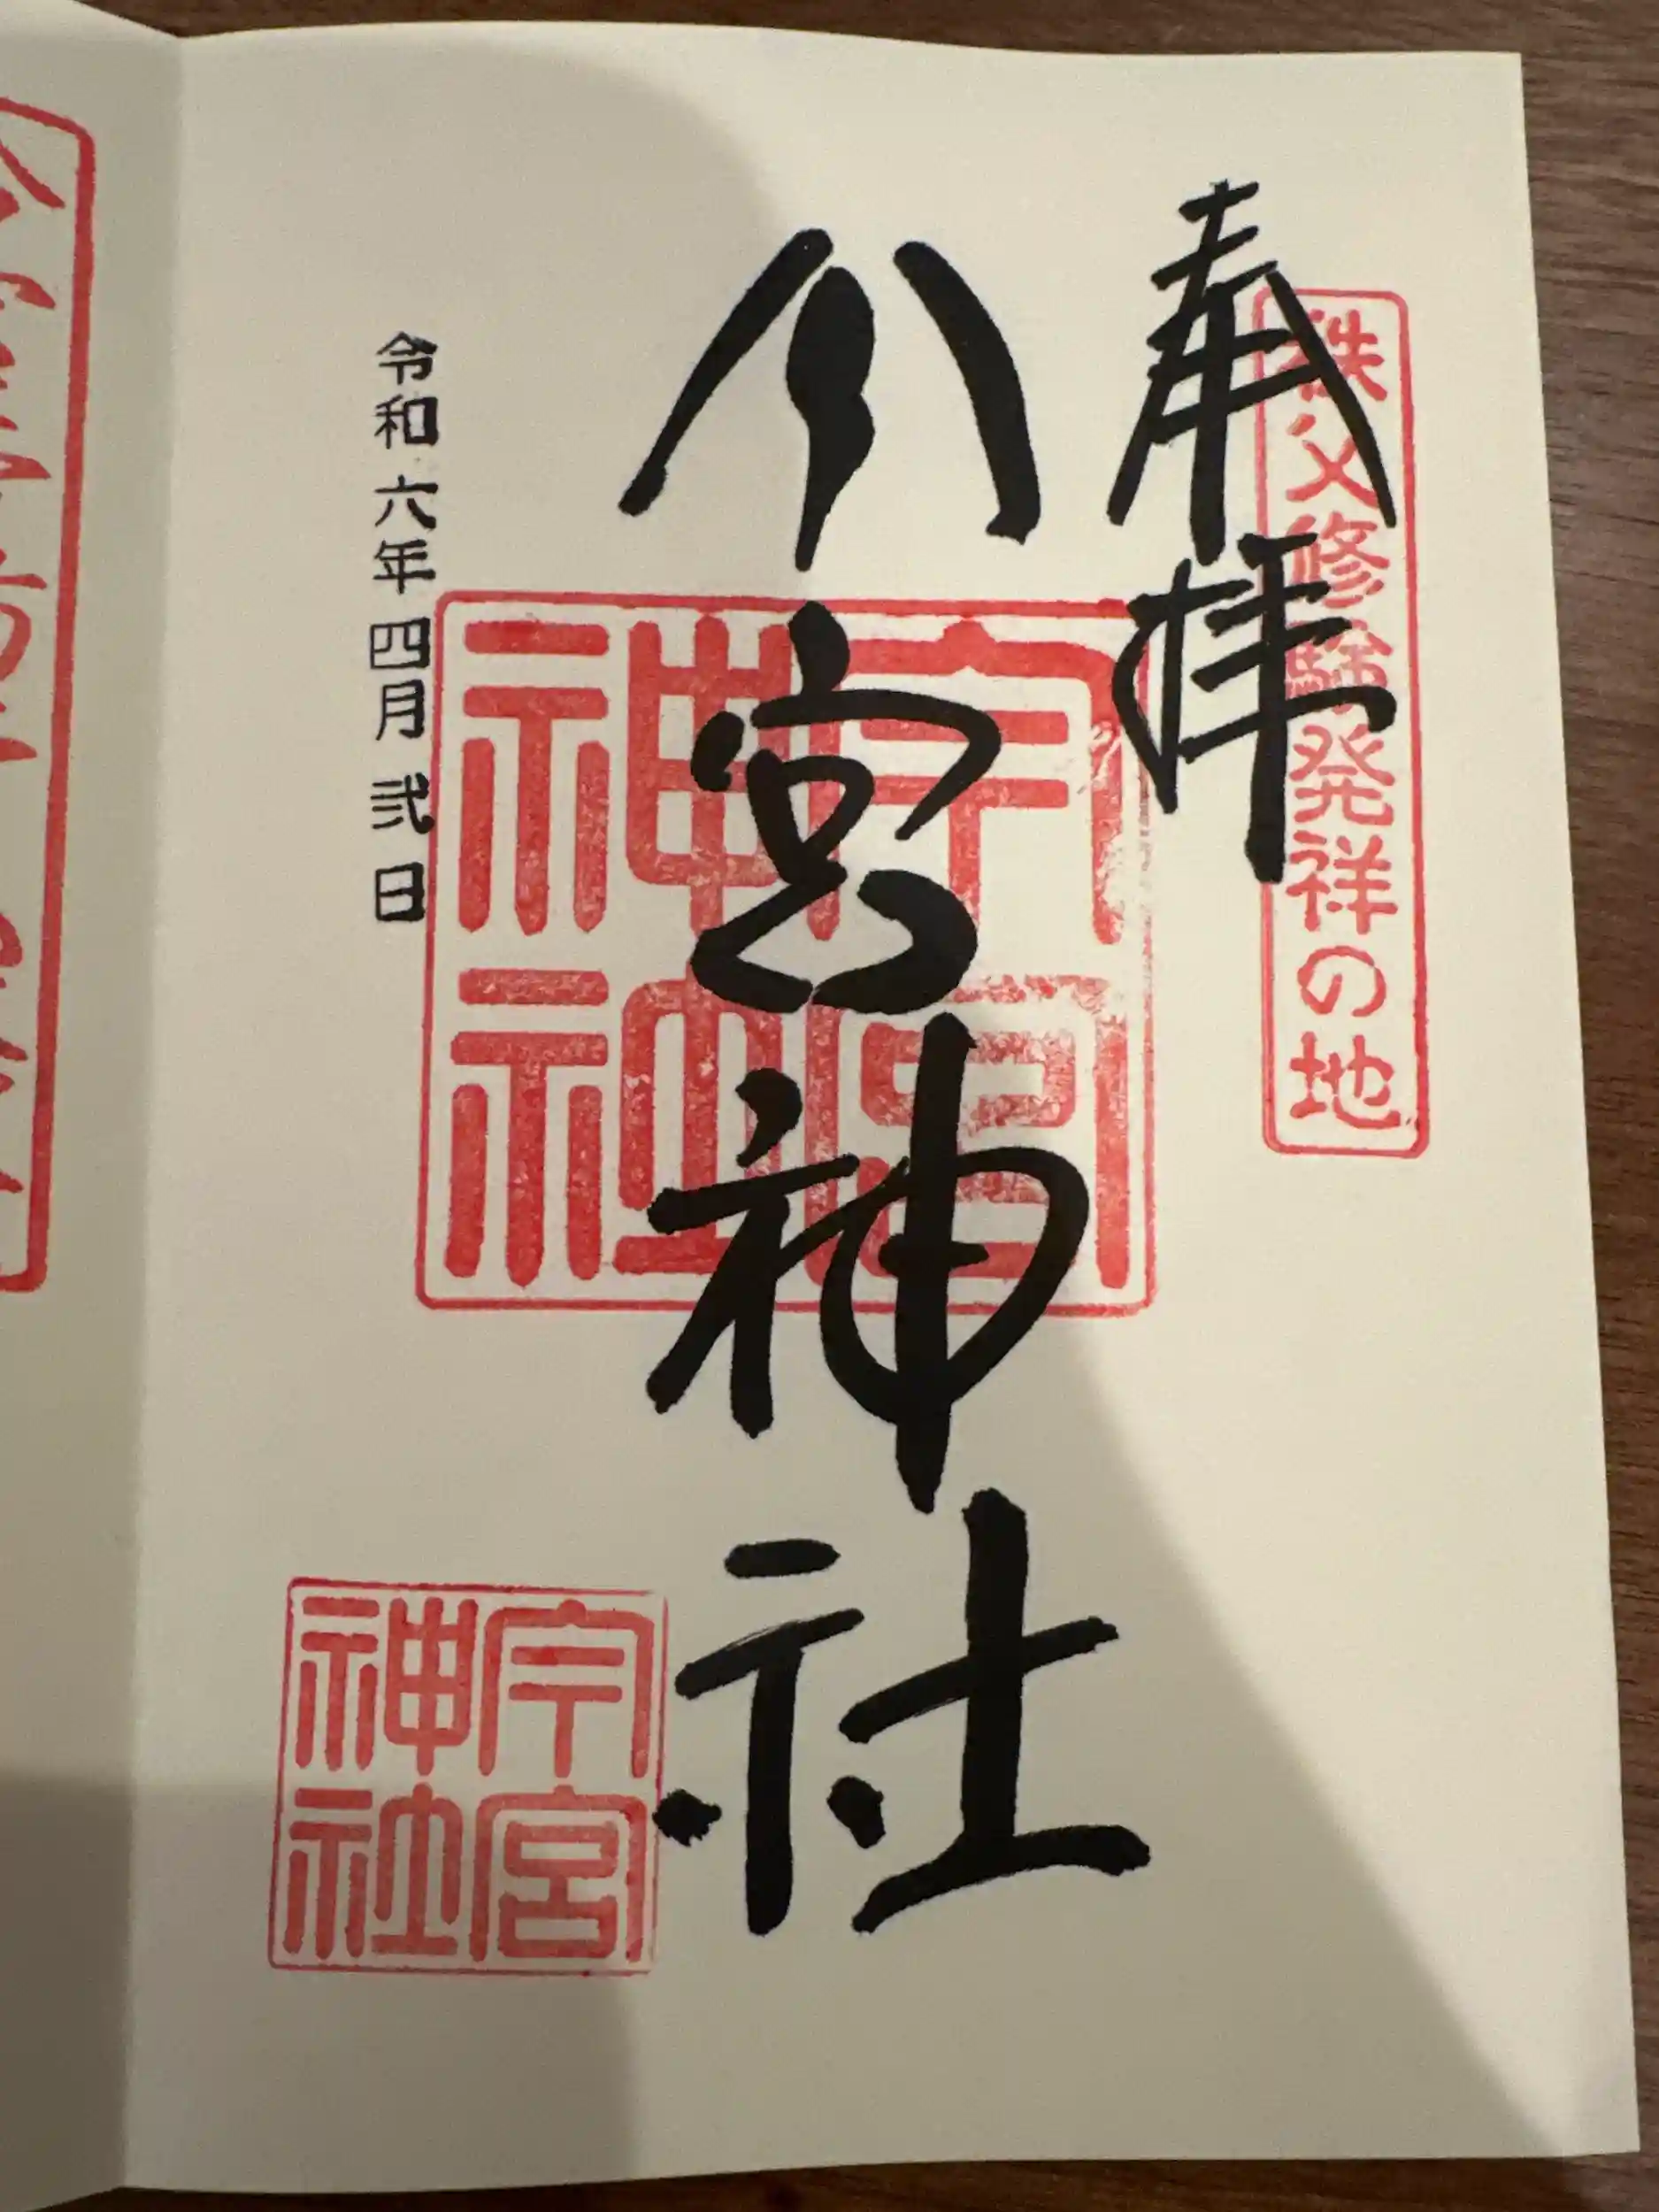 秩父修験発祥の地
奉拝
今宮神社
今宮
神社
令和六年四月弐日
今宮
神社